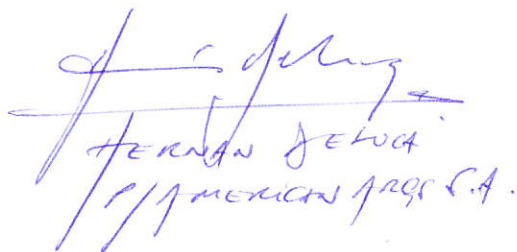 HERNAN DELUCA
P/AMERICAN ARGS S.A.